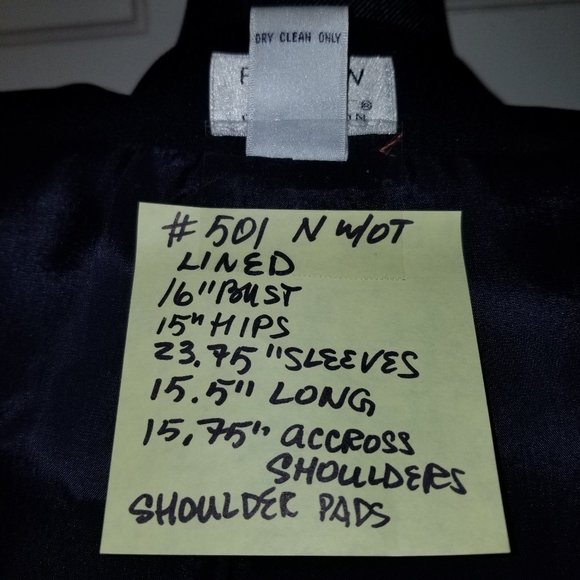 DRY CLEAN ONLY
®
#501 N W/OT
LINED
16" BUST
15" HIPS
23.75" SLEEVES
15.5" LONG
15.75" ACCROSS
SHOULDERS
SHOULDER PADS